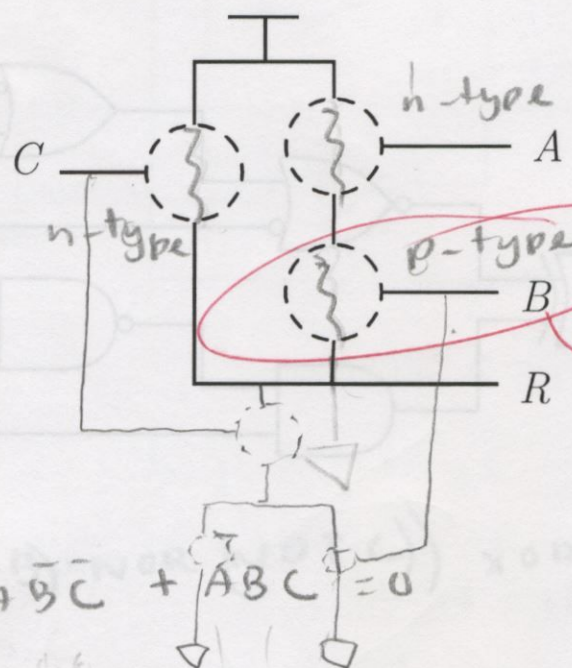 n-type
C A
n-type p-type
B
R
A B̄ C̄ + Ā B C = 0